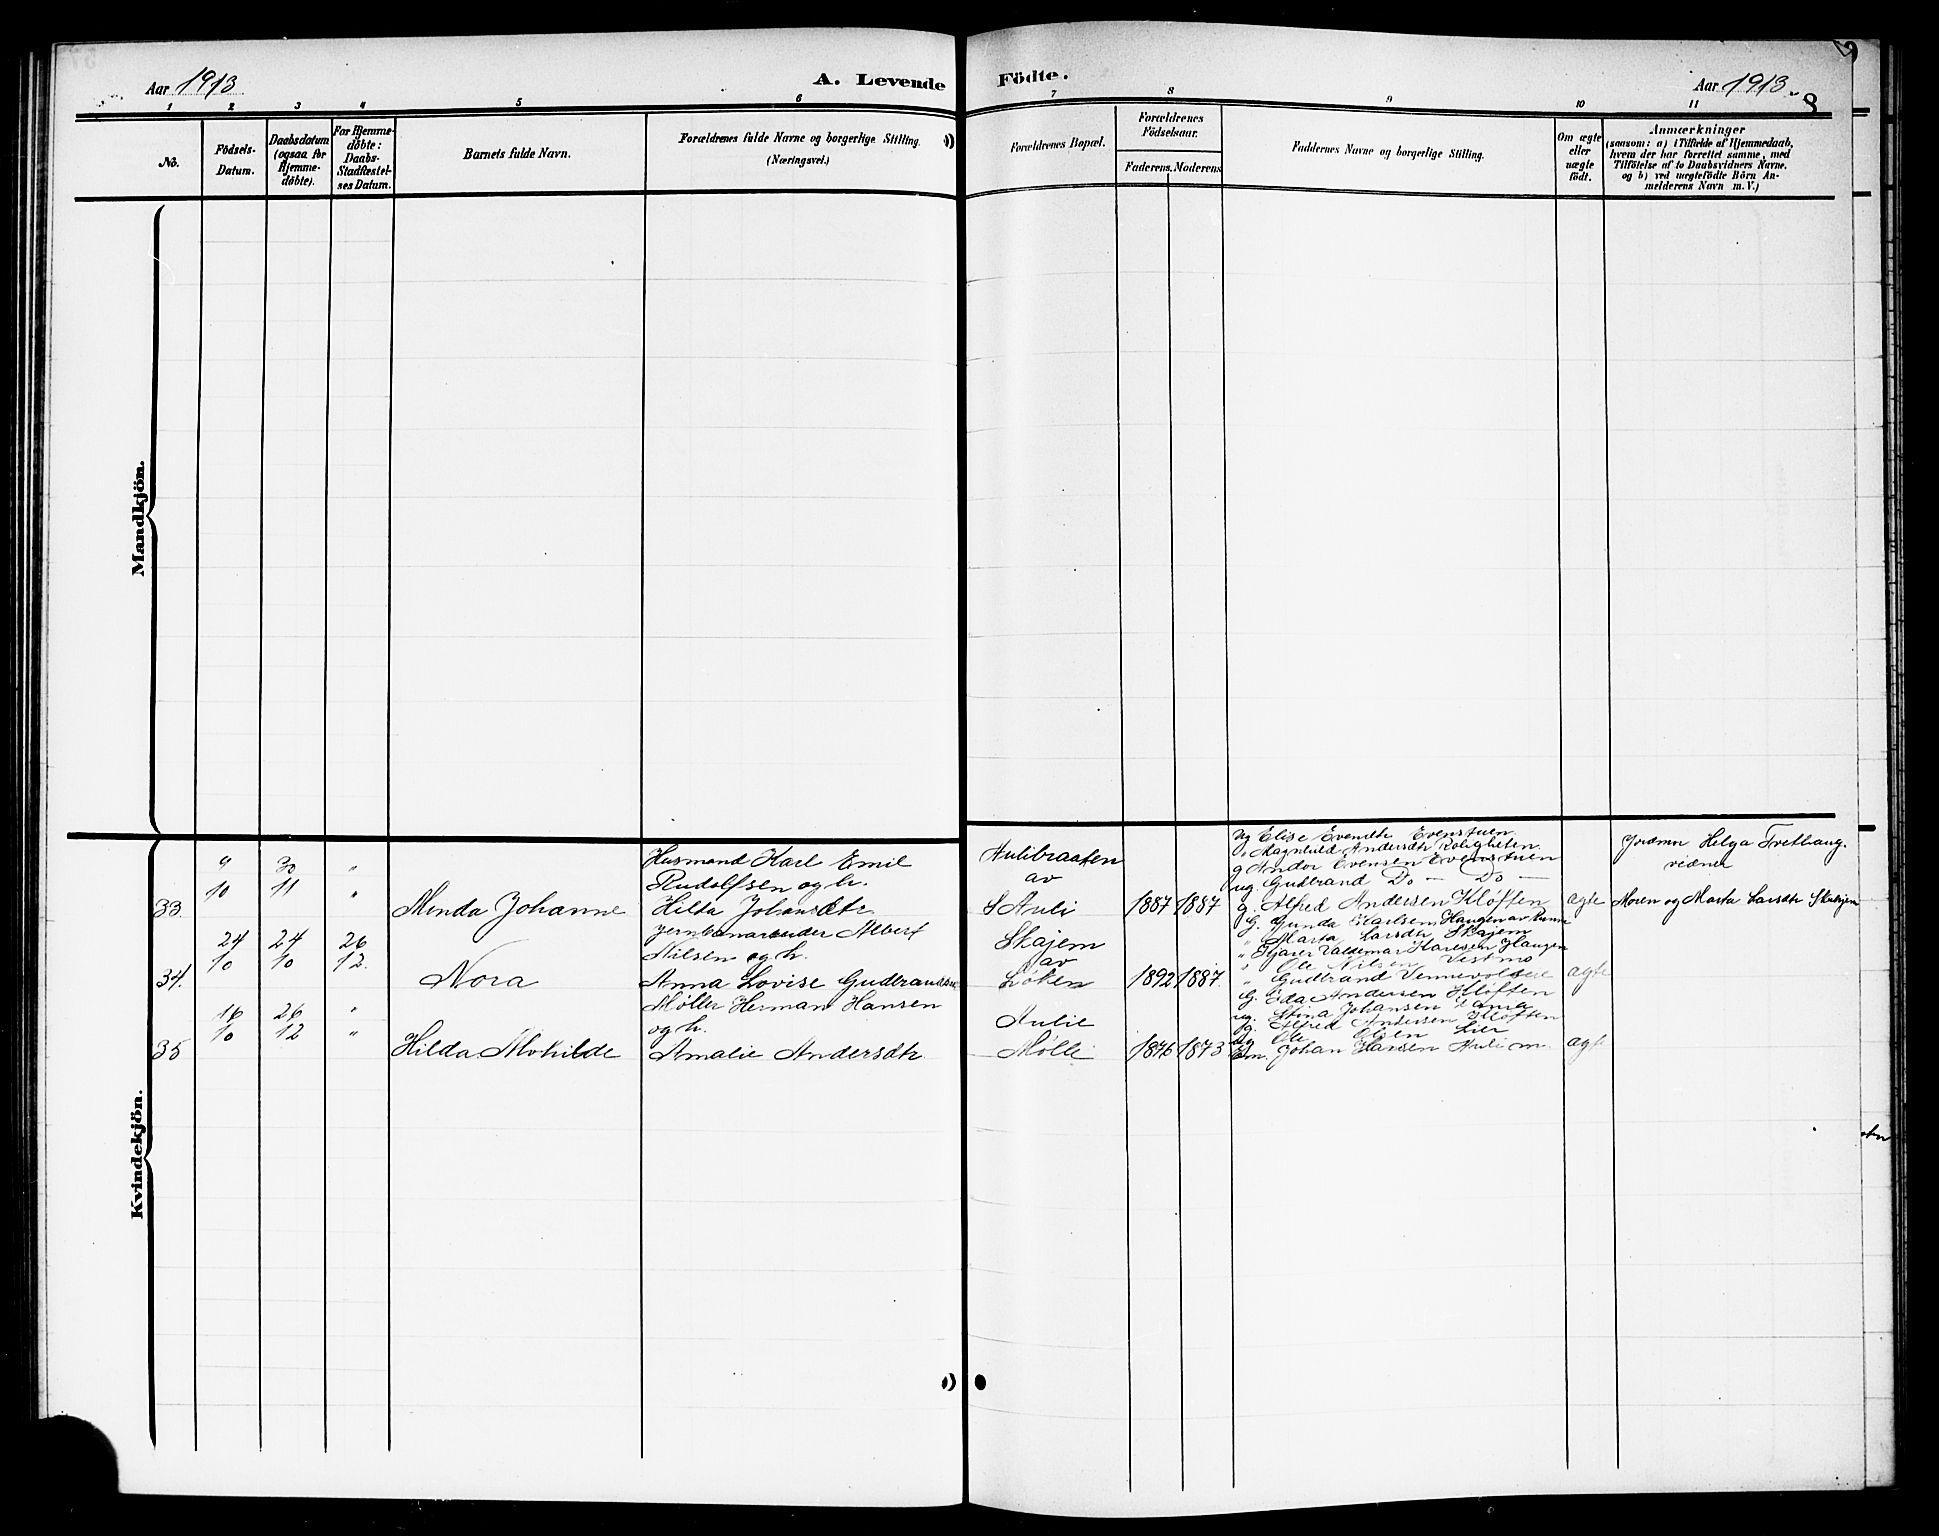 Aar 1913
A. Levende
Födte.
Aar 1913.
8
1 2 3 4 5 6 7 8 9 10 11
No.
Födsels-
Datum.
Daabsdatum
(ogsaa for
Hjemme-
döbte).
For Hjemme-
döbte:
Daabs-
Stadfestel-
ses Datum.
Barnets fulde Navn.
Forældrenes fulde Navne og borgerlige Stilling.
(Næringsvei.)
Forældrenes Bopæl.
Forældrenes
Födselsaar.
Faderens. Moderens
Faddernes Navne og borgerlige Stilling.
Om ægte
eller
uægte
födt.
Anmærkninger
(saasom: a) i Tilfælde af Hjemmedaab,
hvem der har forrettet samme, med
Tilföielse af to Daabsvidners Navne.
og b) ved uægtefödte Börn An-
melderens Navn m. V.)
Mandkjön.
Kvindekjön.
33.
9/10
30/11
"
"
Minda Johanne
Husmand Karl Emil
Rudolfsen og h.
Hilda Johansdtr
Aulibraaten
av
S Auli
1887 1887
ug Elise Evendtr Evenstuen
" Magnhild Andersdtr Roligheten
g Andor Evensen Evenstuen
ug. Gudbrand Do — Do —
g. Alfred Andersen Kløften
ægte
Jordmor Helga Trethaug.
vidner
Moren og Marta Larsdtr Skajem
34.
24/10
24/10
26/12.
Nora
Jernbanearbeider Albert
Nilsen og h.
Anna Lovise Gudbrandsen
Skajem
av
Løken
1892 1887.
G. Gunda Karlsen Haugen av
" Marta Larsdtr Skajem
" Valdemar Karlsen Haugen
" Ole Nilsen Vestmo
" Gudbrand
ægte
35
16/10
26/12
"
"
Hilda Mohilde
Møller Herman Hansen
og h.
Amalie Andersdtr.
Aulie
Mølle
1876 1873
G. Eda Andersen Kløften
ug. Stina Johansen
g. Alfred Andersen Kløften
ug Ole Olsen Lier
Em. Johan Hansen Auli m.
ægte